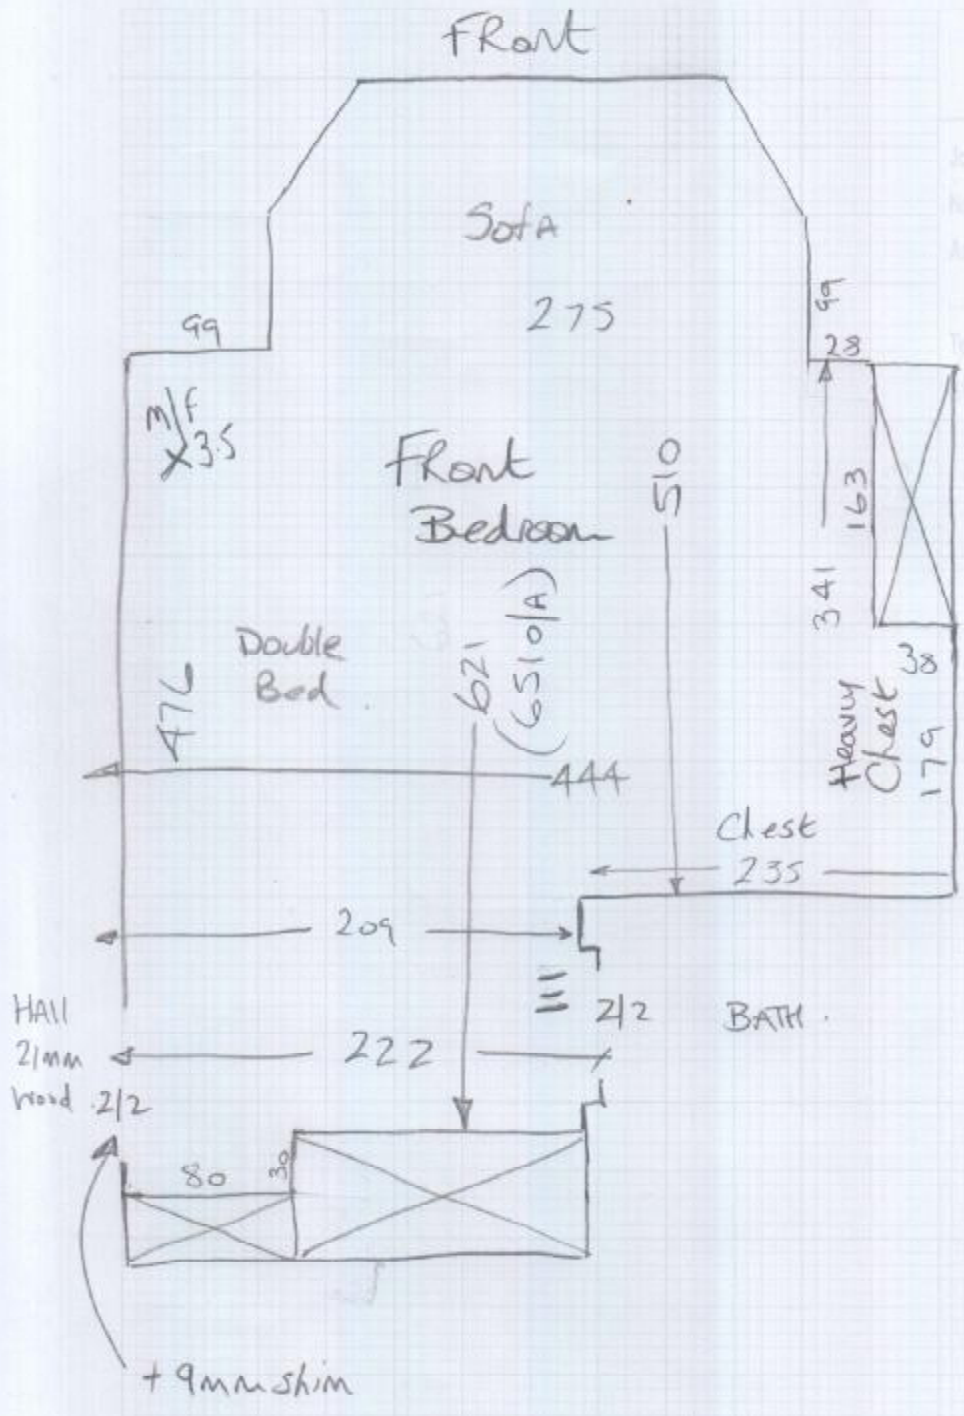 FRont
SofA
275
99
99
28
m/f
X3.5
FRont
Bedroom
510
163
341
Double
Bed
476
621
(651 o/A)
38
Heavy
Chest
179
444
Chest
235
209
HAll
21mm
Wood 2/2
2/2
BATH.
222
80
30
+ 9mm shim